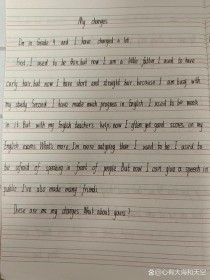 My changes
I'm in Grade 9 and I have changed a lot.
First, I used to be thin, but now I am a little fatter. I used to have
curly hair, but now I have short and straight hair because I am busy with
my study. Second, I have made much progress in English. I used to be weak
in it. But with my English teacher's help, now I often get good scores on my
English exams. What's more, I'm more outgoing than I used to be. I used to
be afraid of speaking in front of people. But now I can give a speech in
public. I've also made many friends.
These are my changes. What about yours?